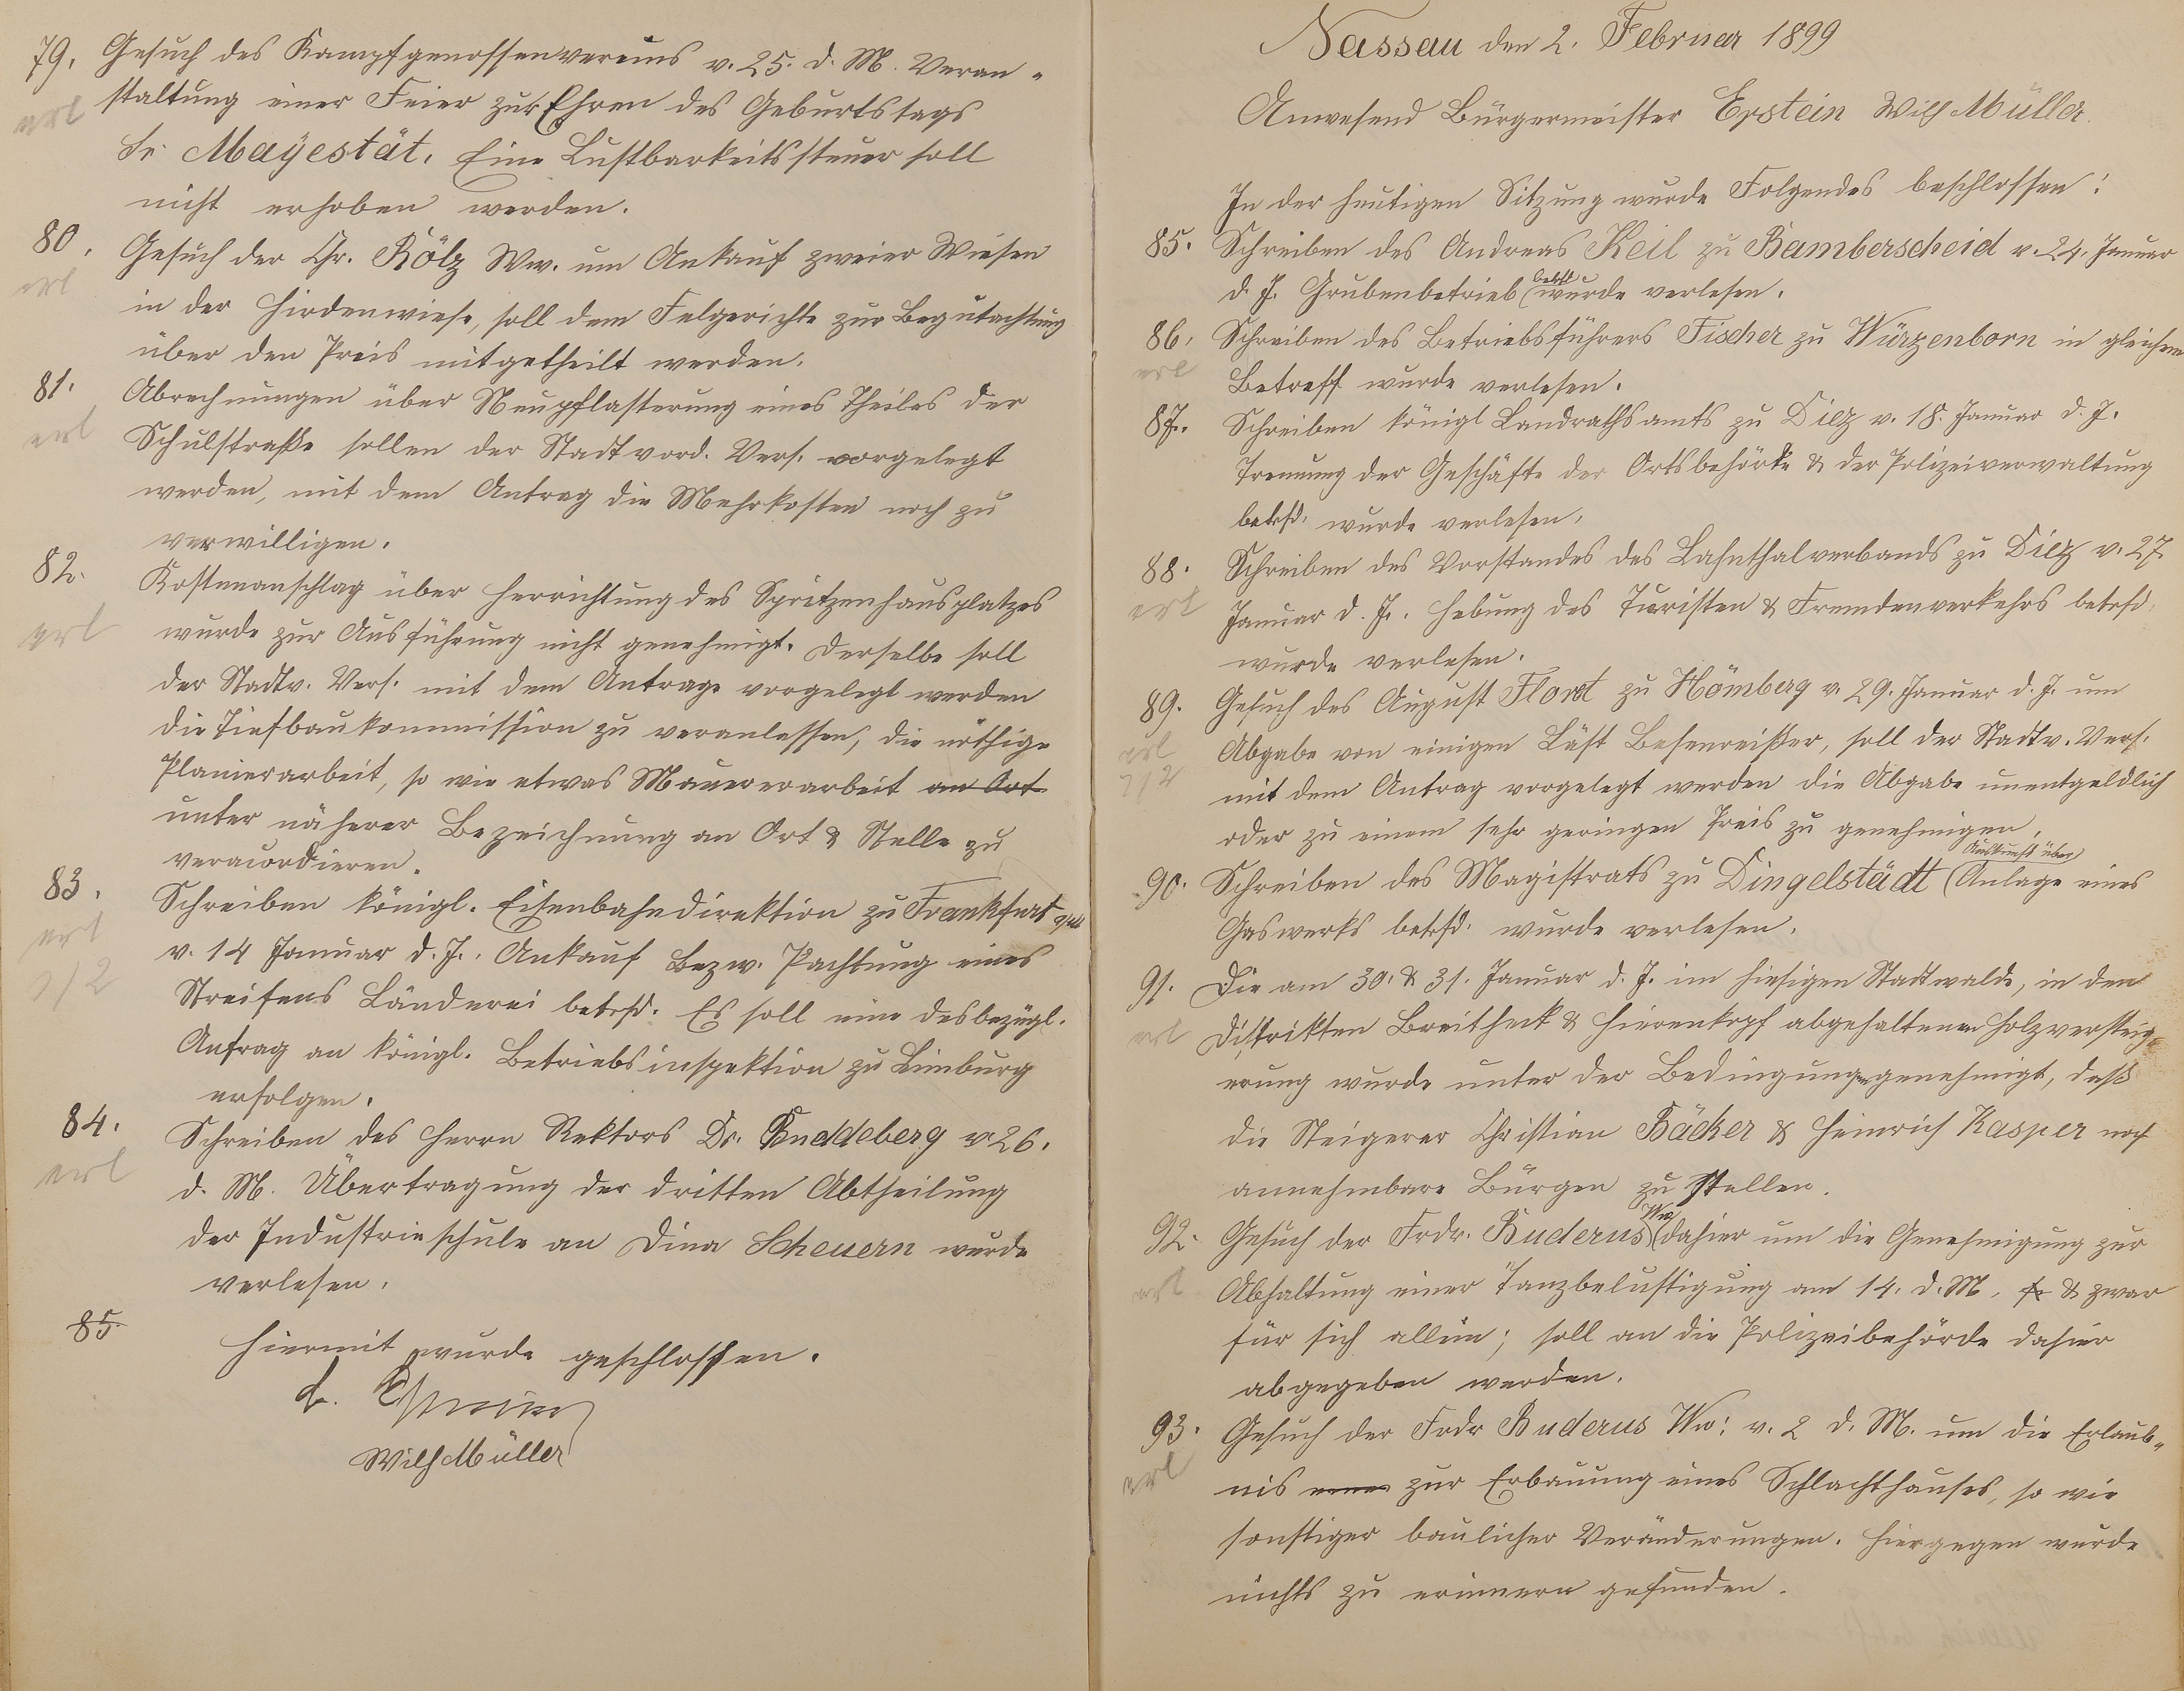 79. Gesuch des Kampfgenossenvereins v. 25. d. M. Veran-
erl staltung einer Feier zur Ehren des Geburtstags
Sr. Mayestät. Eine Lustbarkeitssteuer soll
nicht erhoben werden.
80. Gesuch der Chr. Kölz Ww. um Ankauf zweier Wiesen
erl in der Hirdenwiese, soll dem Felgerichte zur Begutachtung
über den Preis mitgetheilt werden.
81. Abrechnungen über Neupflasterung eines Theiles der
erl Schulstraße sollen der Stadtvord. Vers. vorgelegt
werden, mit dem Antrag die Mehrkosten noch zu
verwilligen.
82. Kostenanschlag über Herrichtung des Spritzenhausplatzes
erl wurde zur Ausführung nicht genehmigt. Derselbe soll
der Stadtv. Vers. mit dem Antrage vorgelegt werden
die Tiefbaukommission zu veranlassen, die nöthige
Planierarbeit, so wie etwas Mauererarbeit an Ort
unter näherer Bezeichnung an Ort & Stelle zu
veracordieren.
83. Schreiben königl. Eisenbahndirektion zu Frankfurt
erl v. 14 Januar d. J. Ankauf bezw. Pachtung eines
7/2 Streifens Länderei betrfd. Es soll eine desbezügl.
Anfrag an königl. Betriebsinspektion zu Limburg
erfolgen.
84. Schreiben des Herrn Rektors Dr. Buddeberg v. 26.
erl d. M. Übertragung der dritten Abtheilung
der Industrieschule an Dina Scheuern wurde
verlesen.
85.
Hiermit wurde geschlossen.
Wilh Müller
Nassau den 2. Februar 1899
Anwesend Bürgermeister Epstein Wilh Müller.
In der heutigen Sitzung wurde Folgendes beschlossen:
85. Schreiben des Andreas Keil zu Bamberscheid v. 24. Januar
betrfd
d. J. Grubenbetrieb (wurde verlesen.
86. Schreiben des Betriebsführers Fischer zu Würzenborn in gleichem
erl Betreff wurde verlesen.
87. Schreiben königl Landrathsamts zu Diez v. 18. Januar d. J.
Trennung der Geschäfte der Ortsbehörde & der Polizeiverwaltung
betrfd. wurde verlesen.
88. Schreiben des Vorstandes des Lahnthalverbands zu Diez v. 27.
erl Januar d. J. Hebung des Turisten & Fremdenverkehrs betrfd.
wurde verlesen.
89. Gesuch des August zu Hömberg v. 29. Januar d. J. um
erl Abgabe von einigen Läst Besenreißer, soll der Stadtv. Vers.
7/2 mit dem Antrag vorgelegt werden die Abgabe unentgeldlich
oder zu einem sehr geringen Preis zu genehmigen.
Auskunft über
90. Schreiben des Magistrats zu Dingelstädt (Anlage eines
Gaswerks betrfd. wurde verlesen.
91. Die am 30. & 31. Januar d. J. im hiesigen Stadtwalde, in den
erl Distrikten Breitheck & Hierenkopf abgehaltenen Holzversteig-
erung wurde unter der Bedingung genehmigt, daß
die Steigerer Christian Bäcker & Heinrich Kasper noch
annehmbare Bürgen zu stellen.
Ww
92. Gesuch der Frdr. Buderus (dahier um die Genehmigung zur
erl Abhaltung einer Tanzbelustigung am 14. d. M. & zwar
für sich allein; soll an die Polizeibehörde dahier
abgegeben werden.
93. Gesuch der Frdr Buderus Ww: v. 2 d. M. um die Erlaub-
erl nis zur Erbauung eines Schlachthauses, so wie
sonstiger baulicher Veränderungen. Hiergegen wurde
nichts zu erinnern gefunden.